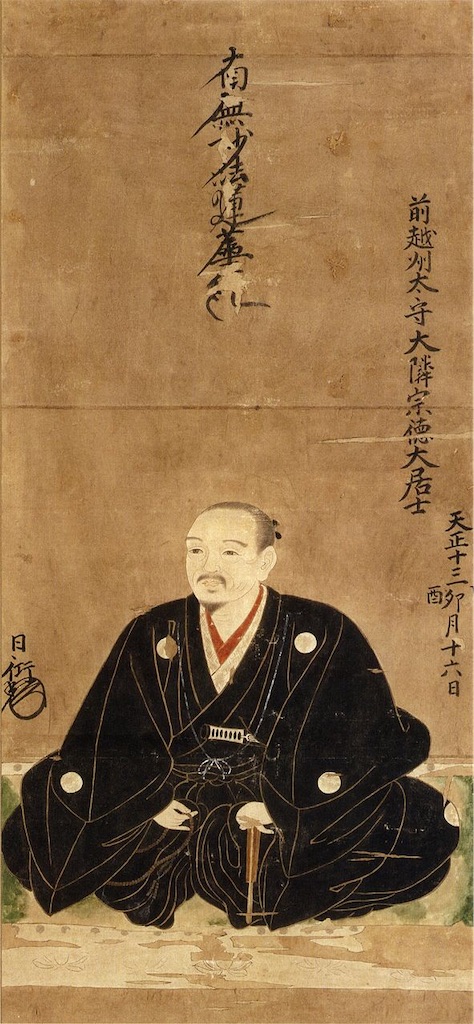 南無妙法蓮華経
前越州太守大隣宗德大居士
天正十三酉卯月十六日
日衍